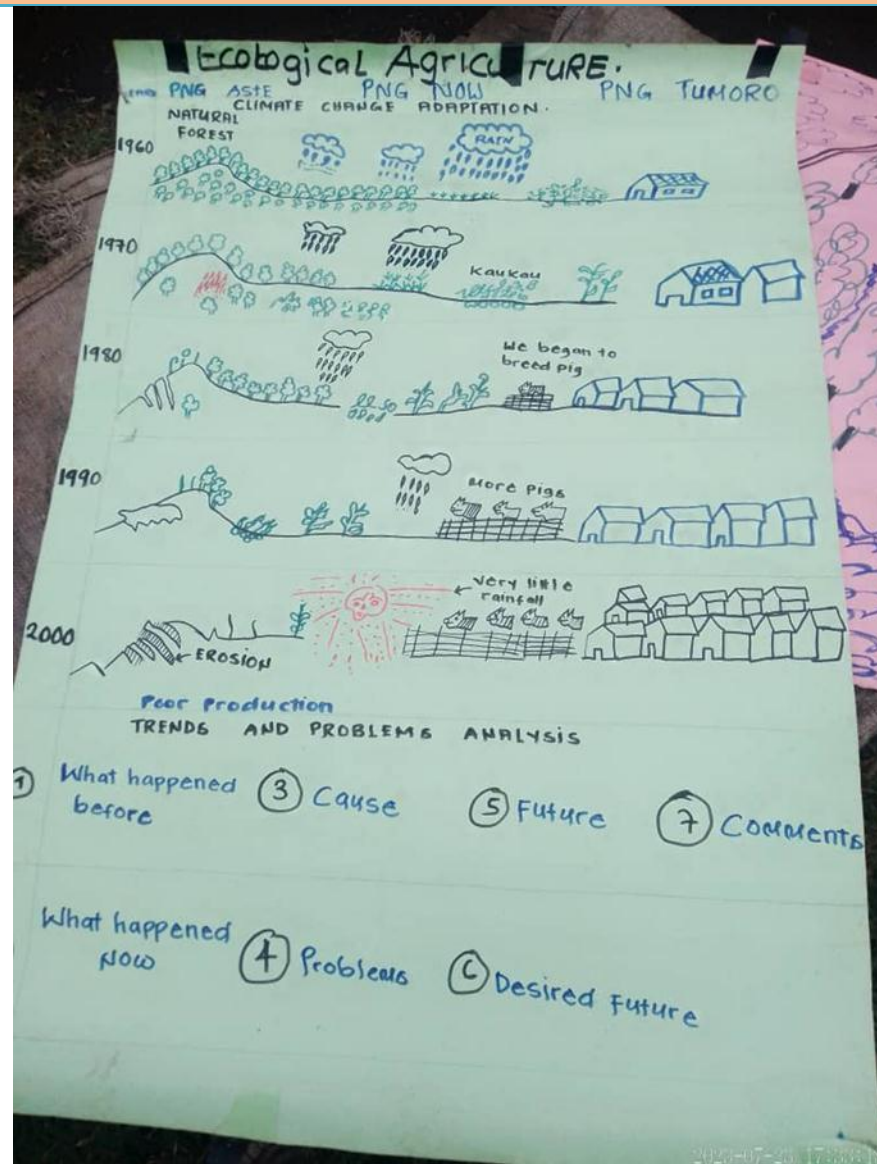 Ecological AgricuTURE.
PNG ASTE PNG NOW PNG TUMORO
CLIMATE CHANGE ADAPTATION.
NATURAL
FOREST
1960
RAIN
1970
KAUKAU
1980
We began to
breed pig
1990
More Pigs
2000
Very little
rainfall
EROSION
Poor Production
TRENDS AND PROBLEMS ANALYSIS
1 What happened
before
3 Cause
5 Future
7 Comments
What happened
NOW
4 Problems
6 Desired Future